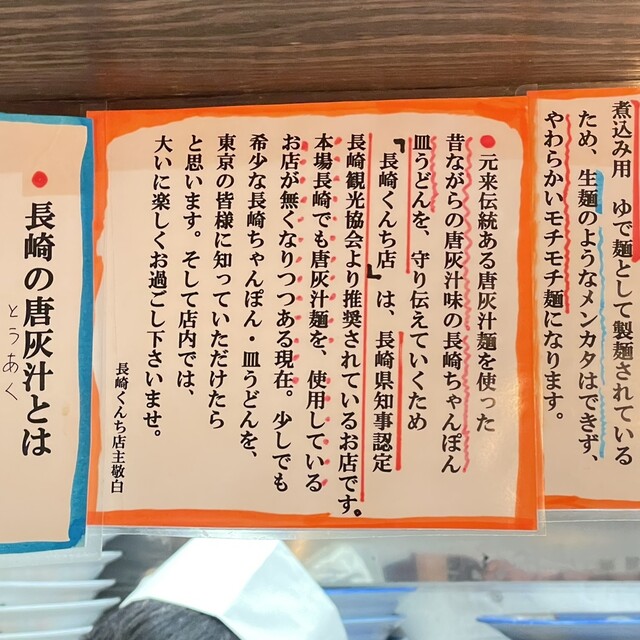 煮込み用 ゆで麺として製麺されている
ため、生麺のようなメンカタはできず、
やわらかいモチモチ麺になります。
●元来伝統ある唐灰汁麺を使った
昔ながらの唐灰汁味の長崎ちゃんぽん
皿うどんを、守り伝えていくため
「長崎くんち店」は、長崎県知事認定
長崎観光協会より推奨されているお店です。
本場長崎でも唐灰汁麺を、使用している
お店が無くなりつつある現在。少しでも
希少な長崎ちゃんぽん・皿うどんを、
東京の皆様に知っていただけたら
と思います。そして店内では、
大いに楽しくお過ごし下さいませ。
長崎くんち店主敬白
●長崎の唐灰汁とは
とうあく